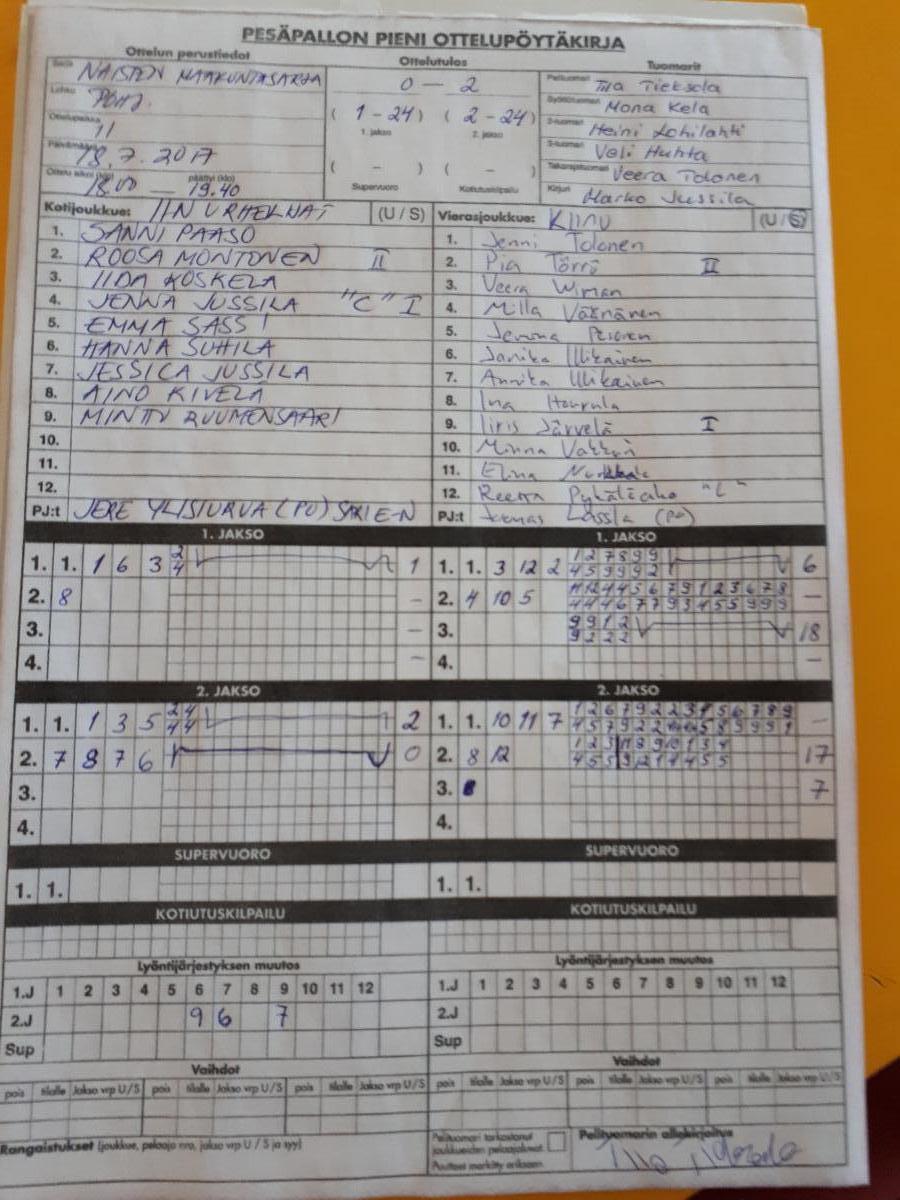 PESÄPALLON PIENI OTTELUPÖYTÄKIRJA
Ottelun perustiedot
Ottelutulos
Tuomarit
Sarja NAISTEN MAAKUNTASARJA
Lohko POHJ.
Ottelupaikka II
Päivämäärä 18.7.2017
Ottelu alkoi (klo) 18.00 — päättyi (klo) 19.40
0 – 2
(1 – 24) (2 – 24)
1. jakso 2. jakso
( – ) ( – )
Supervuoro Kotiutuskilpailu
Pelituomari Tiia Tieksola
Syöttötuomari Mona Kela
2-tuomari Heini Lohilahti
3-tuomari Veli Huhta
Takarajatuomari Veera Tolonen
Kirjuri Marko Jussila
Kotijoukkue: IIN URHEILIJAT (U / S)
1. SANNI PAASO
2. ROOSA MONTONEN II
3. IIDA KOSKELA
4. JENNA JUSSILA "C" I
5. EMMA SASSI
6. HANNA SUHILA
7. JESSICA JUSSILA
8. AINO KIVELÄ
9. MINTTU RUUMENSAARI
10.
11.
12.
PJ:t JERE YLISIURUA (PJ)
Vierasjoukkue: KIINU (U / S)
1. Jenni Tolonen
2. Pia Törrö II
3. Veera Wiman
4. Milla Väänänen
5. Jemma
6. Janika Ullikainen
7. Annika Ullikainen
8. Ina
9. Iiris Järvelä I
10. Minna
11. Elina
12. Reetta "C"
PJ:t Joonas Lassila (PJ)
1. JAKSO
1. 1. 1 6 3 2 1
4
2. 8 –
3. –
4. –
1. JAKSO
1. 1. 3 12 2 1 2 7 8 9 9 6
4 5 9 9 9 2
2. 4 10 5 11 12 4 4 5 6 7 9 1 2 3 6 7 8 –
4 4 4 6 7 7 9 3 4 5 5 9 9 9
3. 9 9 1 2 18
9 2 2 2
4. –
2. JAKSO
1. 1. 1 3 5 2 4 2
4 4
2. 7 8 7 6 0
3.
4.
2. JAKSO
1. 1. 10 11 7 1 2 6 7 9 2 2 3 4 5 6 7 8 9 –
2. 8 12 17
3. 7
4.
SUPERVUORO
1. 1.
SUPERVUORO
1. 1.
KOTIUTUSKILPAILU
KOTIUTUSKILPAILU
Lyöntijärjestyksen muutos
1.J 1 2 3 4 5 6 7 8 9 10 11 12
2.J 9 6 7
Sup
Lyöntijärjestyksen muutos
1.J 1 2 3 4 5 6 7 8 9 10 11 12
2.J
Sup
Vaihdot
pois tilalle Jakso vrp U/S pois tilalle Jakso vrp U/S pois tilalle Jakso vrp U/S
Vaihdot
pois tilalle Jakso vrp U/S pois tilalle Jakso vrp U/S pois tilalle Jakso vrp U/S
Rangaistukset (joukkue, pelaaja nro, jakso vrp U / S ja syy)
Pelituomari tarkastanut
joukkueiden pelaajaluvat
Puutteet merkitty erikseen
Pelituomarin allekirjoitus